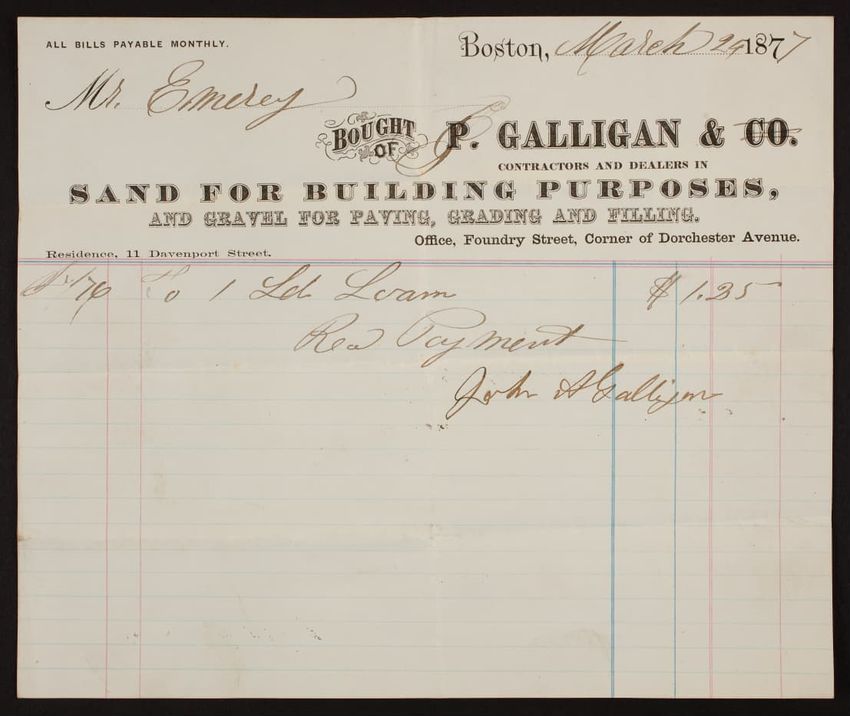 ALL BILLS PAYABLE MONTHLY.
Boston, March 29 1877
Mr. Emerey
BOUGHT OF P. GALLIGAN & CO.
CONTRACTORS AND DEALERS IN
SAND FOR BUILDING PURPOSES,
AND GRAVEL FOR PAVING, GRADING AND FILLING.
Office, Foundry Street, Corner of Dorchester Avenue.
Residence, 11 Davenport Street.
/76 To 1 Ld Loam $1.25
Rec Payment
John A Galligan